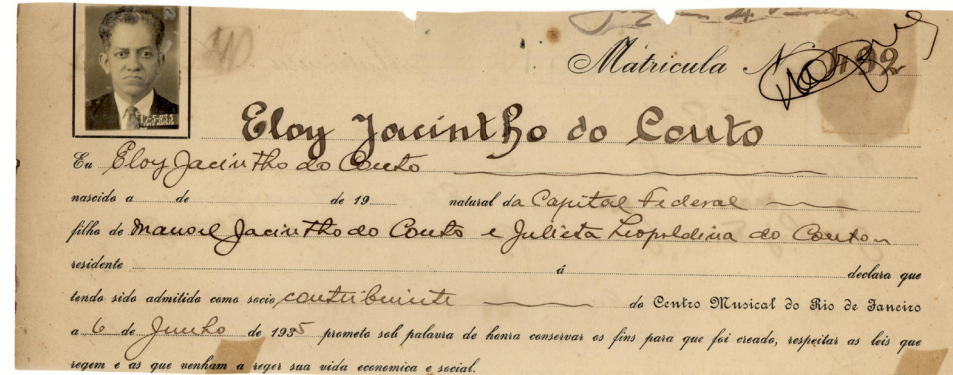 Matricula N
Eloy Jacintho do Couto
Eu Eloy Jacintho do Couto
nascido a de de 19 natural da Capital Federal
filho de Manoel Jacintho do Couto e Julieta Leopoldina do Couto
residente á declara que
tendo sido admitido como socio contribuinte do Centro Musical do Rio de Janeiro
a 6 de Junho de 1935 prometo sob palavra de honra conservar os fins para que foi creado, respeitar as leis que
regem e as que venham a reger sua vida economica e social.